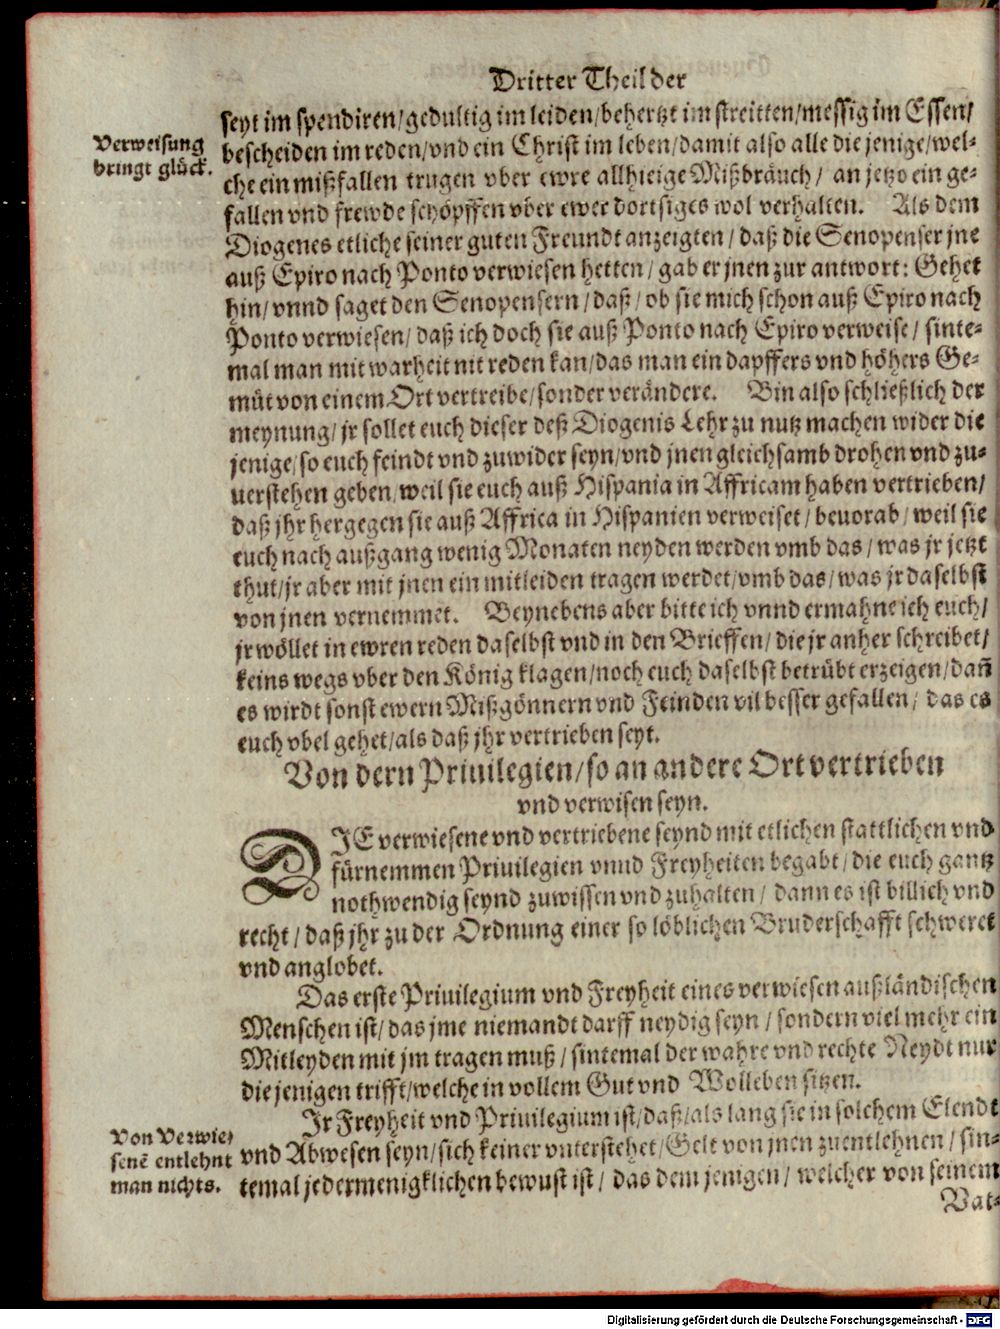 Dritter Theil der
seyt im spendiren/gedultig im leiden/behertzt im streitten/messig im Essen/
Verweisung
bringt glück.
bescheiden im reden/vnd ein Christ im leben/damit also alle die jenige/wel-
che ein mißfallen trugen vber ewre allhieige Mißbräuch/ an jetzo ein ge-
fallen vnd frewde schöpffen vber ewer dortsiges wol verhalten. Als dem
Diogenes etliche seiner guten Freundt anzeigten/ daß die Senopenser jne
auß Epiro nach Ponto verwiesen hetten/ gab er jnen zur antwort: Gehet
hin/ vnnd saget den Senopensern/ daß/ ob sie mich schon auß Epiro nach
Ponto verwiesen/ daß ich doch sie auß Ponto nach Epiro verweise/ sinte-
mal man mit warheit nit reden kan/das man ein dapffers vnd höhers Ge-
müt von einem Ort vertreibe/sonder verändere. Bin also schließlich der
meynung/ jr sollet euch dieser deß Diogenis Lehr zu nutz machen wider die
jenige/so euch feindt vnd zuwider seyn/vnd jnen gleichsamb drohen vnd zu-
uerstehen geben/weil sie euch auß Hispania in Affricam haben vertrieben/
daß jhr hergegen sie auß Affrica in Hispanien verweiset/ beuorab/ weil sie
euch nach außgang wenig Monaten neyden werden vmb das/ was jr jetzt
thut/jr aber mit jnen ein mitleiden tragen werdet/vmb das/ was jr daselbst
von jnen vernemmet. Beynebens aber bitte ich vnnd ermahne ich euch/
jr wöllet in ewren reden daselbst vnd in den Brieffen/ die jr anher schreibet/
keins wegs vber den König klagen/noch euch daselbst betrübt erzeigen/dañ
es wirdt sonst ewern Mißgönnern vnd Feinden vil besser gefallen/ das es
euch vbel gehet/als daß jhr vertrieben seyt.
Von dern Priuilegien/so an andere Ort vertrieben
vnd verwisen seyn.
DIE verwiesene vnd vertriebene seynd mit etlichen stattlichen vnd
fürnemmen Priuilegien vnnd Freyheiten begabt/ die euch gantz
nothwendig seynd zuwissen vnd zuhalten/ dann es ist billich vnd
recht/ daß jhr zu der Ordnung einer so löblichen Bruderschafft schweret
vnd anglobet.
Das erste Priuilegium vnd Freyheit eines verwiesen außländischen
Menschen ist/ das jme niemandt darff neydig seyn/ sondern viel mehr ein
Mitleyden mit jm tragen muß/ sintemal der wahre vnd rechte Neydt nur
die jenigen trifft/welche in vollem Gut vnd Wolleben sitzen.
Ir Freyheit vnd Priuilegium ist/daß/als lang sie in solchem Elendt
Von Verwie-
senē entlehnt
man nichts.
vnd Abwesen seyn/sich keiner vnterstehet/Gelt von jnen zuentlehnen/ sin-
temal jedermenigklichen bewust ist/ das dem jenigen/ welcher von seinem
Vat-
Digitalisierung gefördert durch die Deutsche Forschungsgemeinschaft - DFG